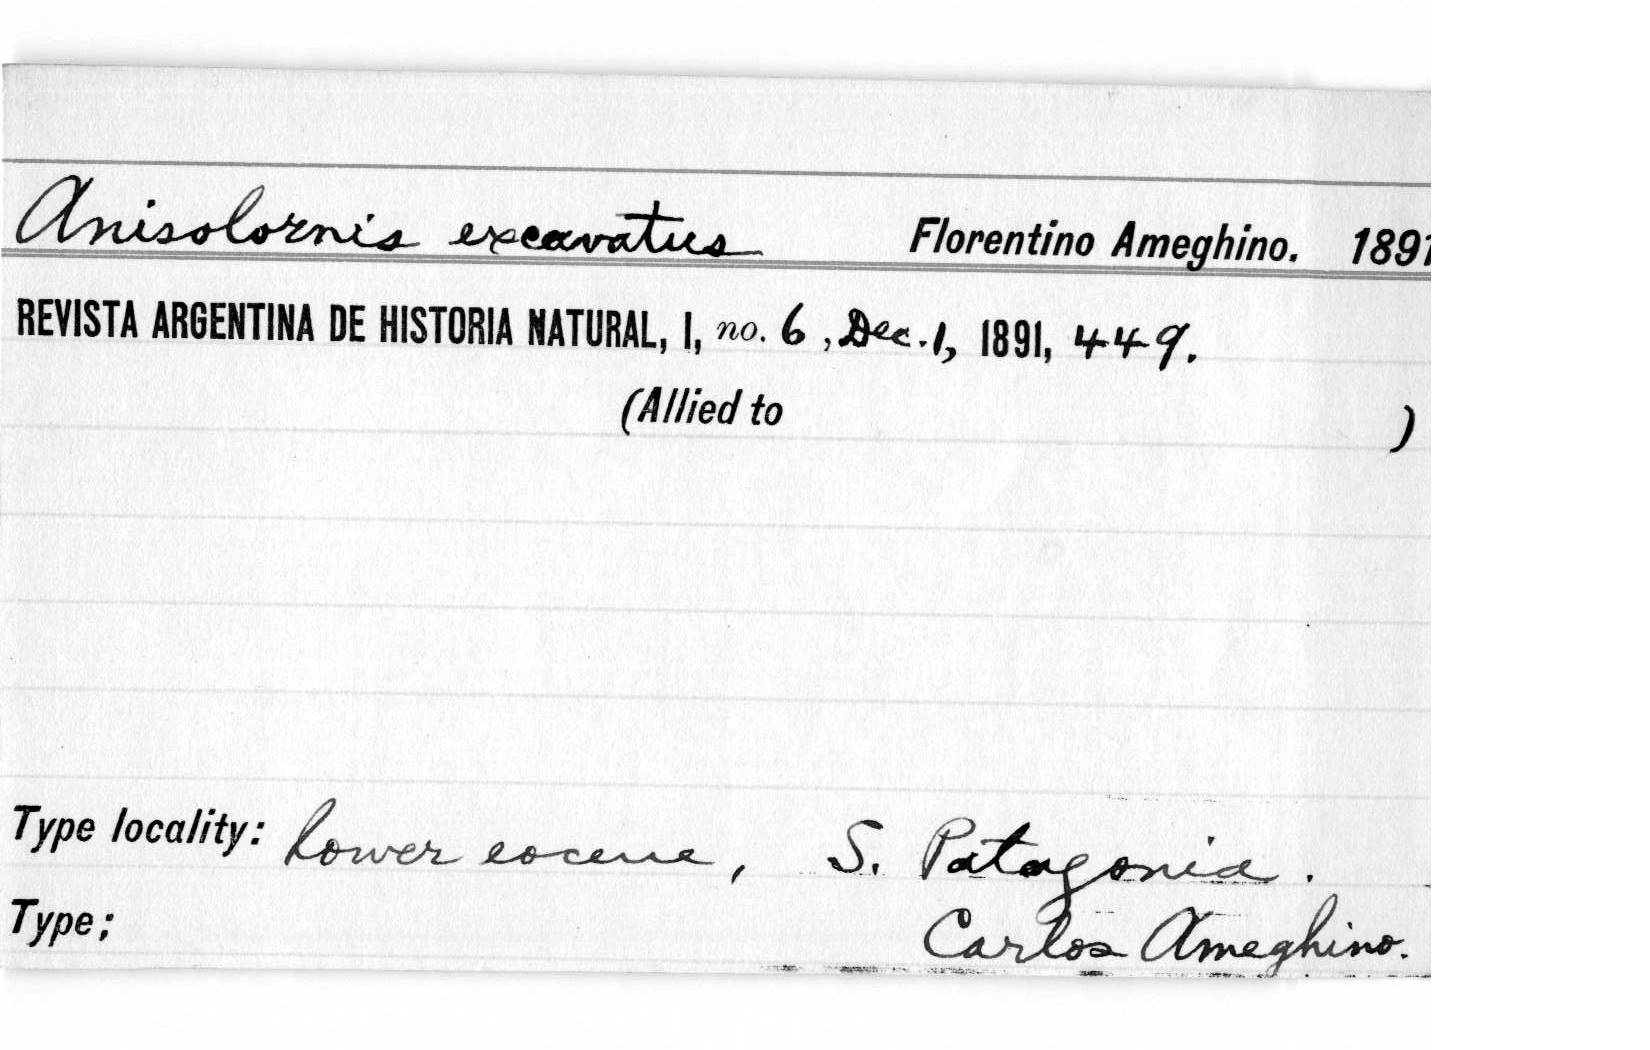 Anisolornis excavatus Florentino Ameghino. 1891
REVISTA ARGENTINA DE HISTORIA NATURAL, I, no. 6, Dec. 1, 1891, 449.
(Allied to )
Type locality: Lower eocene, S. Patagonia.
Type; Carlos Ameghino.